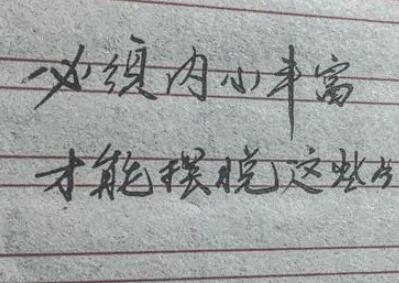 必须内心丰富
才能摆脱这些